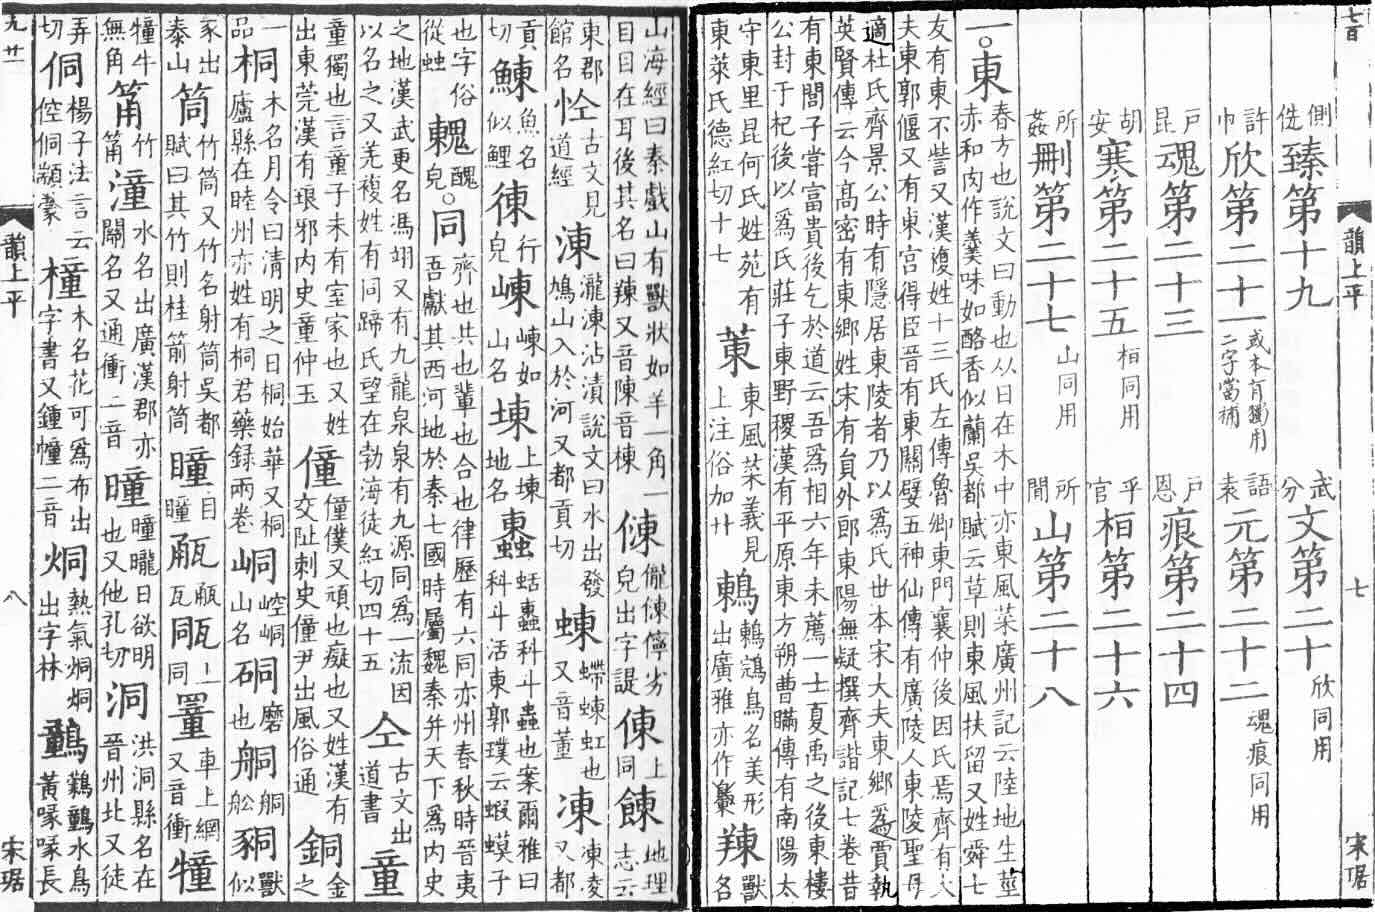 七百 韻上平 七 宋琚
側詵臻第十九 武分文第二十欣同用
許巾欣第二十一或本有獨用二字當補 語袁元第二十二魂痕同用
戶昆魂第二十三 戶恩痕第二十四
胡安寒第二十五桓同用 乎官桓第二十六
所姦刪第二十七山同用 所閒山第二十八
一。東春方也說文曰動也从日在木中亦東風菜廣州記云陸地生莖赤和肉作羹味如酪香似蘭吳都賦云草則東風扶留又姓舜七
友有東不訾又漢複姓十三氏左傳魯卿東門襄仲後因氏焉齊有大夫東郭偃又有東宮得臣晉有東關嬖五神仙傳有廣陵人東陵聖母
適杜氏齊景公時有隱居東陵者乃以爲氏世本宋大夫東鄉爲賈執英賢傳云今高密有東鄉姓宋有員外郎東陽無疑撰齊諧記七卷昔
有東閭子嘗富貴後乞於道云吾爲相六年未薦一士夏禹之後東樓公封于杞後以爲氏莊子東野稷漢有平原東方朔曹瞞傳有南陽太
守東里昆何氏姓苑有東萊氏德紅切十七 菄東風菜義見上注俗加艹 鶇鶇鵍鳥名美形出廣雅亦作 䍶獸名
山海經曰秦戲山有獸狀如羊一角一目目在耳後其名曰䍶又音陳音棟 儱儜劣皃出字諟 倲上同 地理志云
東郡館名 古文見道經 涷瀧涷沾漬說文曰水出發鳩山入於河又都貢切 蝀螮蝀虹也又音董 凍凍凌又都
貢切 鯟魚名似鯉 𢔅行皃 崠崠如山名 埬上埬地名 𧓕蛞𧓕科斗蟲也案爾雅曰科斗活東郭璞云蝦蟆子
也字俗從䖵 醜皃。同齊也共也輩也合也律歷有六同亦州春秋時晉夷吾獻其西河地於秦七國時屬魏秦并天下爲内史
之地漢武更名馮翊又有九龍泉泉有九源同爲一流因以名之又羌複姓有同蹄氏望在勃海徒紅切四十五 仝古文出道書 童
童獨也言童子未有室家也又姓出東莞漢有琅邪内史童仲玉 僮僮僕又頑也癡也又姓漢有交阯刺史僮尹出風俗通 銅金之
一品 桐木名月令曰清明之日桐始華又桐廬縣在睦州亦姓有桐君藥錄兩卷 峒崆峒山名 硐磨也 舸舩 獸似
豕出泰山 筒竹筒又竹名射筒吳都賦曰其竹則桂箭射筒 瞳目瞳 㼧㼧瓦 上同 罿車上網又音衝 犝
犝牛無角 筩竹筩 潼水名出廣漢郡亦關名又通衝二音 曈曈曨日欲明也又他孔切 洞洪洞縣名在晉州北又徒
弄切 侗楊子法言云倥侗顓蒙 橦木名花可爲布出字書又鍾幢二音 烔熱氣烔烔出字林 鷄水鳥黃喙喙長
韻上平 八 宋琚